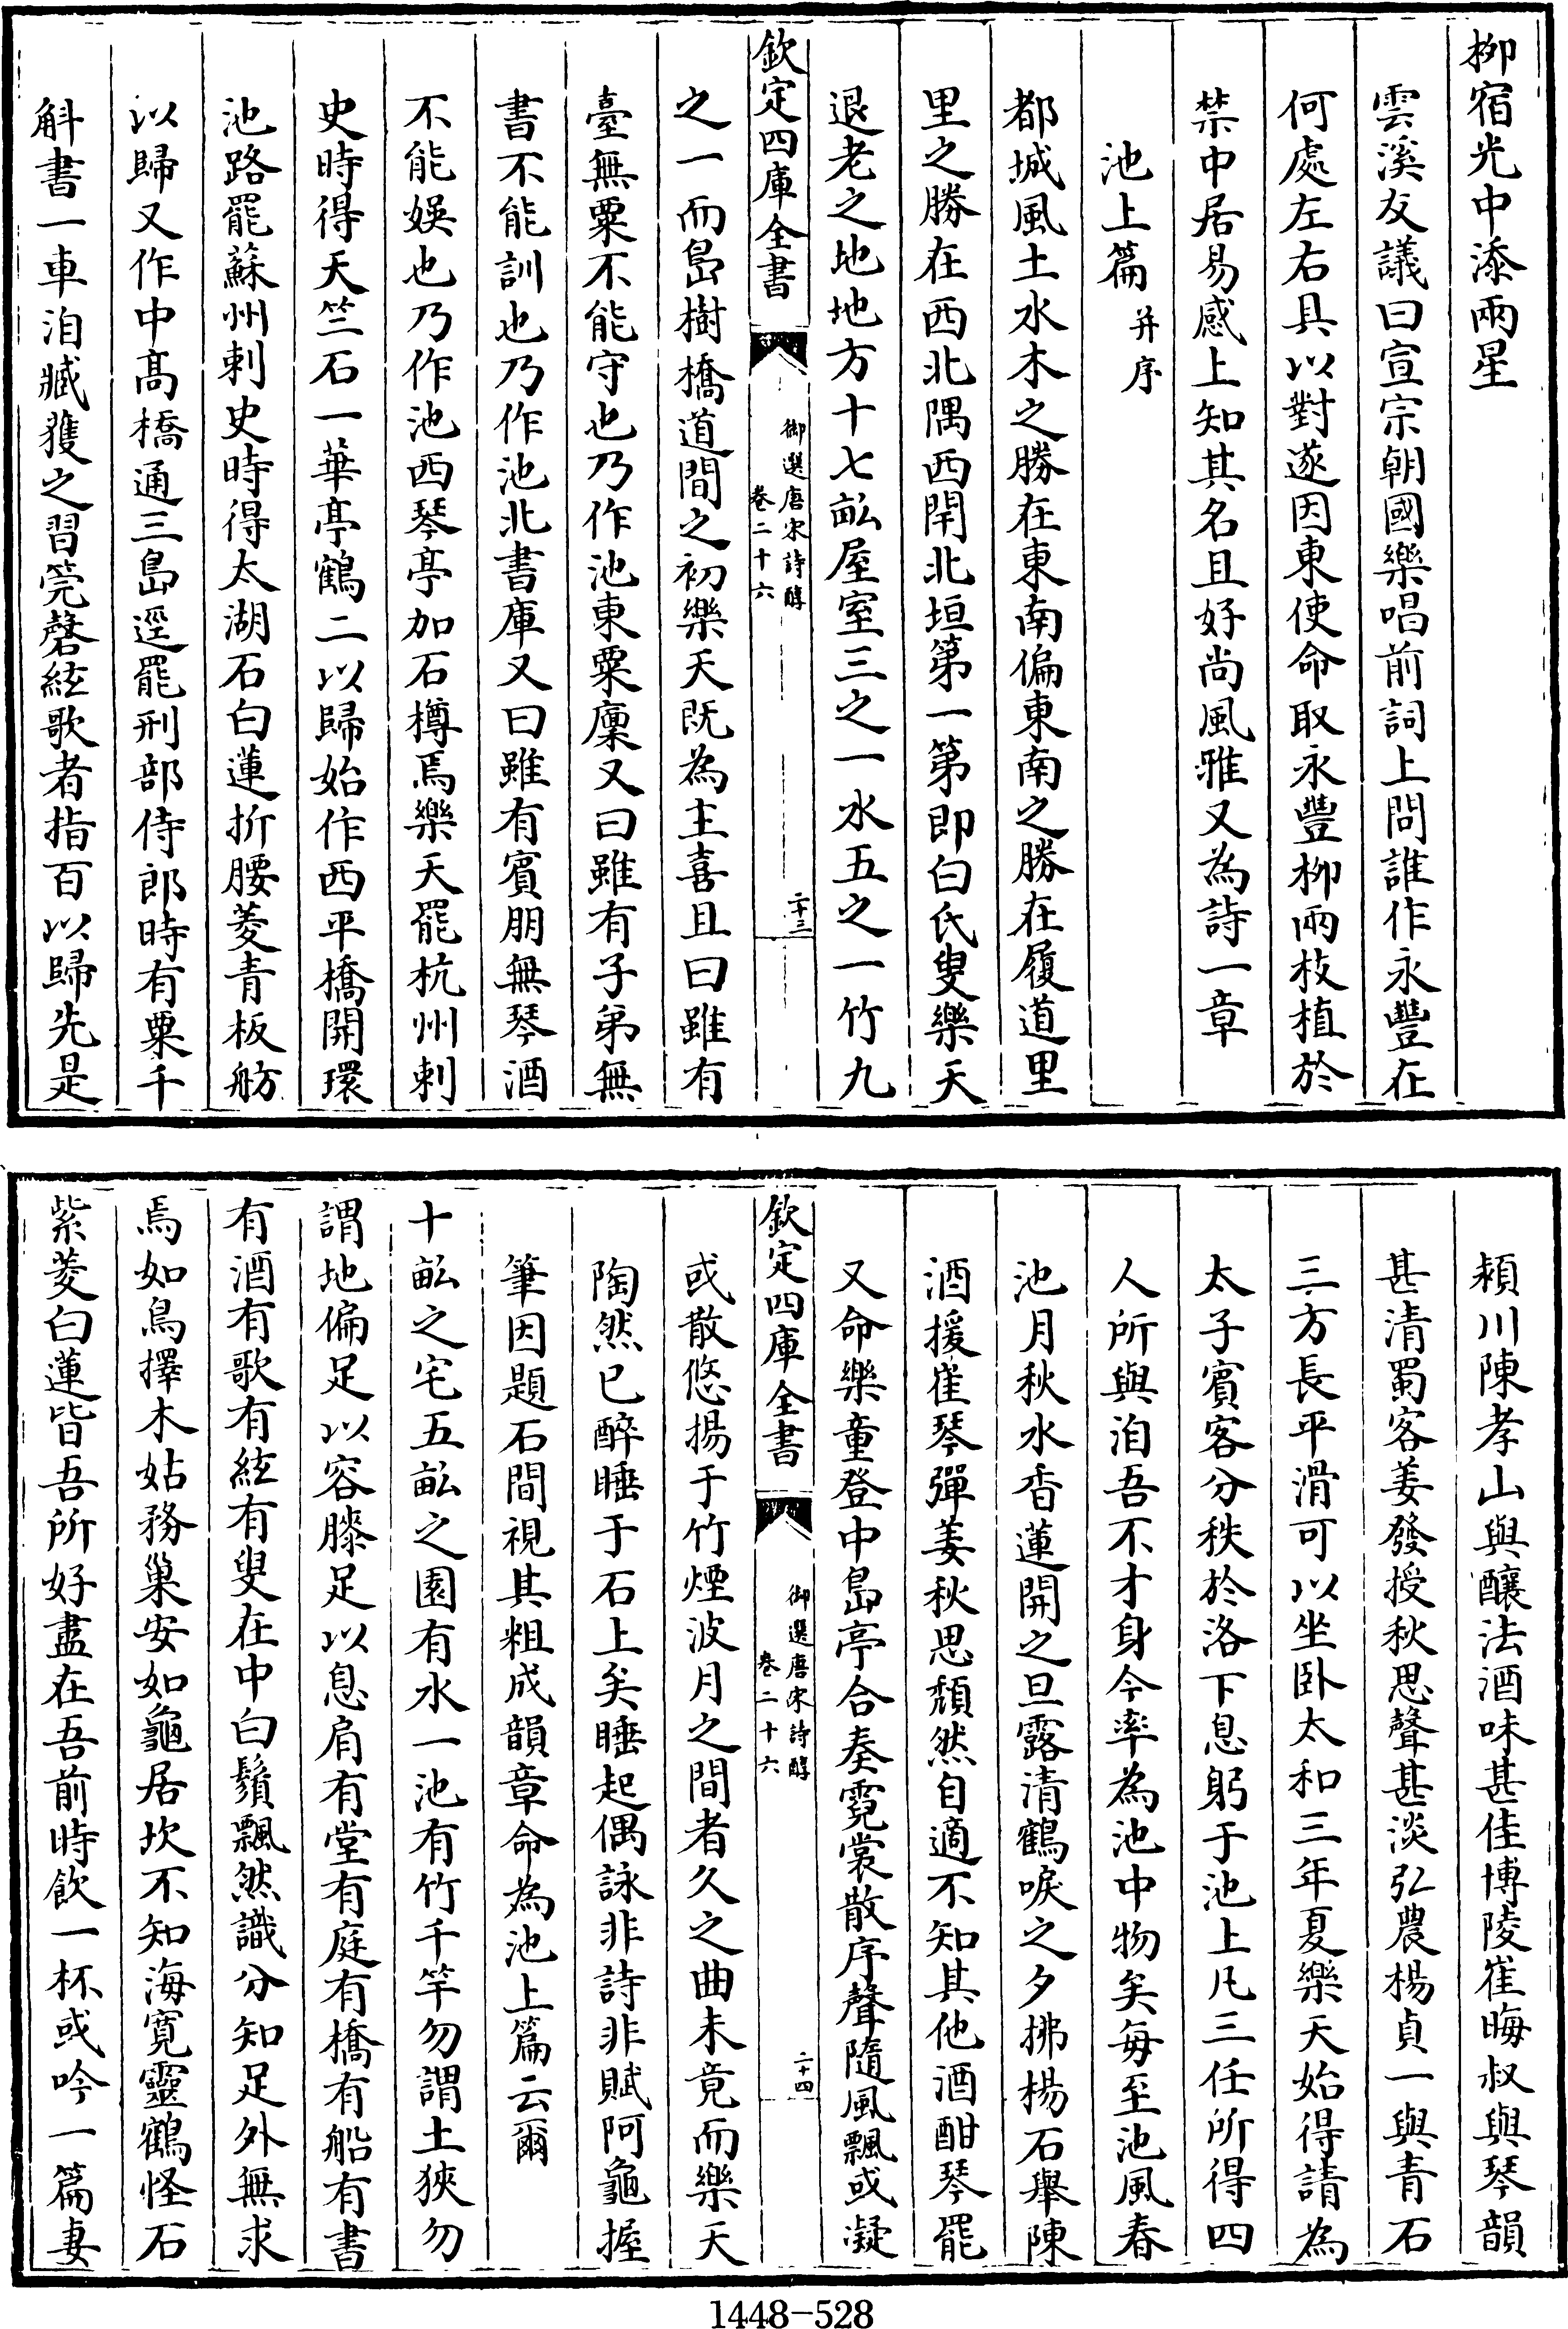 柳宿光中添兩星
雲溪友議曰宣宗朝國樂唱前詞上問誰作永豐在
何處左右具以對遂因東使命取永豐柳兩枝植於
禁中居易感上知其名且好尚風雅又為詩一章
池上篇 并序
都城風土水木之勝在東南偏東南之勝在履道里
里之勝在西北隅西閈北垣第一第即白氏叟樂天
退老之地地方十七畝屋室三之一水五之一竹九
欽定四庫全書
御選唐宋詩醇
卷二十六
二十三
之一而島樹橋道間之初樂天既為主喜且曰雖有
臺無粟不能守也乃作池東粟廩又曰雖有子弟無
書不能訓也乃作池北書庫又曰雖有賓朋無琴酒
不能娛也乃作池西琴亭加石樽焉樂天罷杭州刺
史時得天竺石一華亭鶴二以歸始作西平橋開環
池路罷蘇州刺史時得太湖石白蓮折腰菱青板舫
以歸又作中髙橋通三島逕罷刑部侍郎時有粟千
斛書一車洎臧獲之習筦磬絃歌者指百以歸先是
頴川陳孝山與釀法酒味甚佳博陵崔晦叔與琴韻
甚清蜀客姜發授秋思聲甚淡弘農楊貞一與青石
三方長平滑可以坐卧太和三年夏樂天始得請為
太子賓客分秩於洛下息躬于池上凡三任所得四
人所與洎吾不才身今率為池中物矣每至池風春
池月秋水香蓮開之旦露清鶴唳之夕拂楊石舉陳
酒援崔琴彈姜秋思頽然自適不知其他酒酣琴罷
又命樂童登中島亭合奏霓裳散序聲隨風飄或凝
欽定四庫全書
御選唐宋詩醇
卷二十六
二十四
或散悠揚于竹煙波月之間者久之曲未竟而樂天
陶然已醉睡于石上矣睡起偶詠非詩非賦阿龜握
筆因題石間視其粗成韻章命為池上篇云爾
十畝之宅五畝之園有水一池有竹千竿勿謂土狹勿
謂地偏足以容膝足以息肩有堂有庭有橋有船有書
有酒有歌有絃有叟在中白鬚飄然識分知足外無求
焉如鳥擇木姑務巢安如龜居坎不知海寛靈鶴怪石
紫菱白蓮皆吾所好盡在吾前時飲一杯或吟一篇妻
1448-528